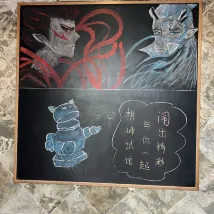 棋峰试馆
与你一起
闯出精彩